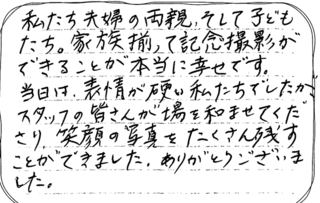 私たち夫婦の両親、そして子ども
たち。家族揃って記念撮影が
できることが本当に幸せです。
当日は、表情が硬い私たちでしたが、
スタッフの皆さんが場を和ませてくだ
さり、笑顔の写真をたくさん残す
ことができました。ありがとうございま
した。